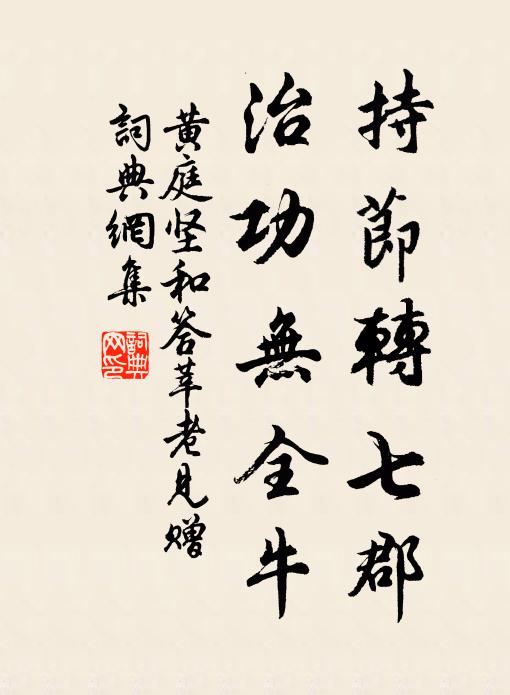 持節轉七郡
治功無全牛
黄庭坚和答莘老见赠
詞典網集
詞典网印